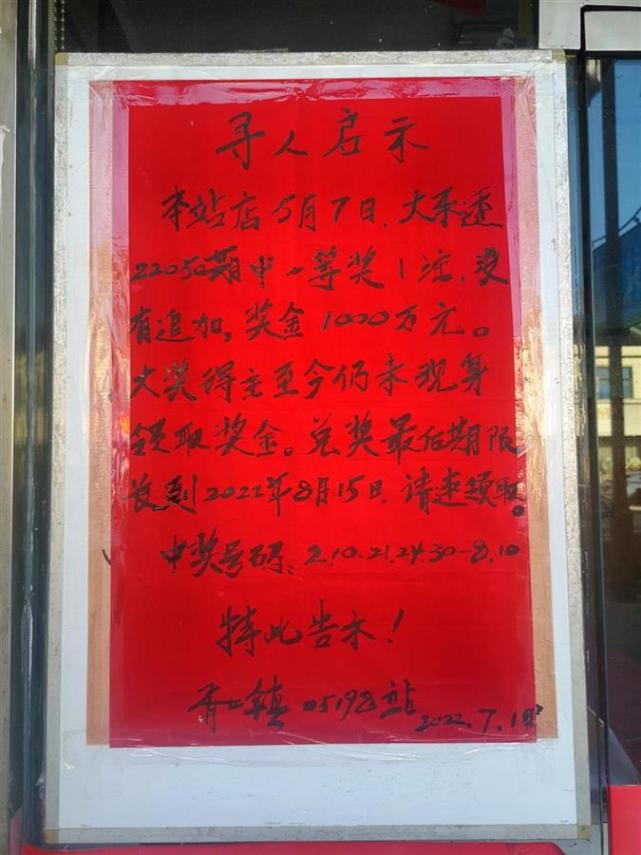 寻人启示
本站店5月7日，大乐透
22050期中一等奖1注，没
有追加，奖金1000万元。
大奖得主至今仍未现身
领取奖金。兑奖最后期限
为到2022年8月15日，请速领取。
中奖号码：2.10.21.24.30-8.10
特此告示！
香口镇 05198站
2022.7.1日